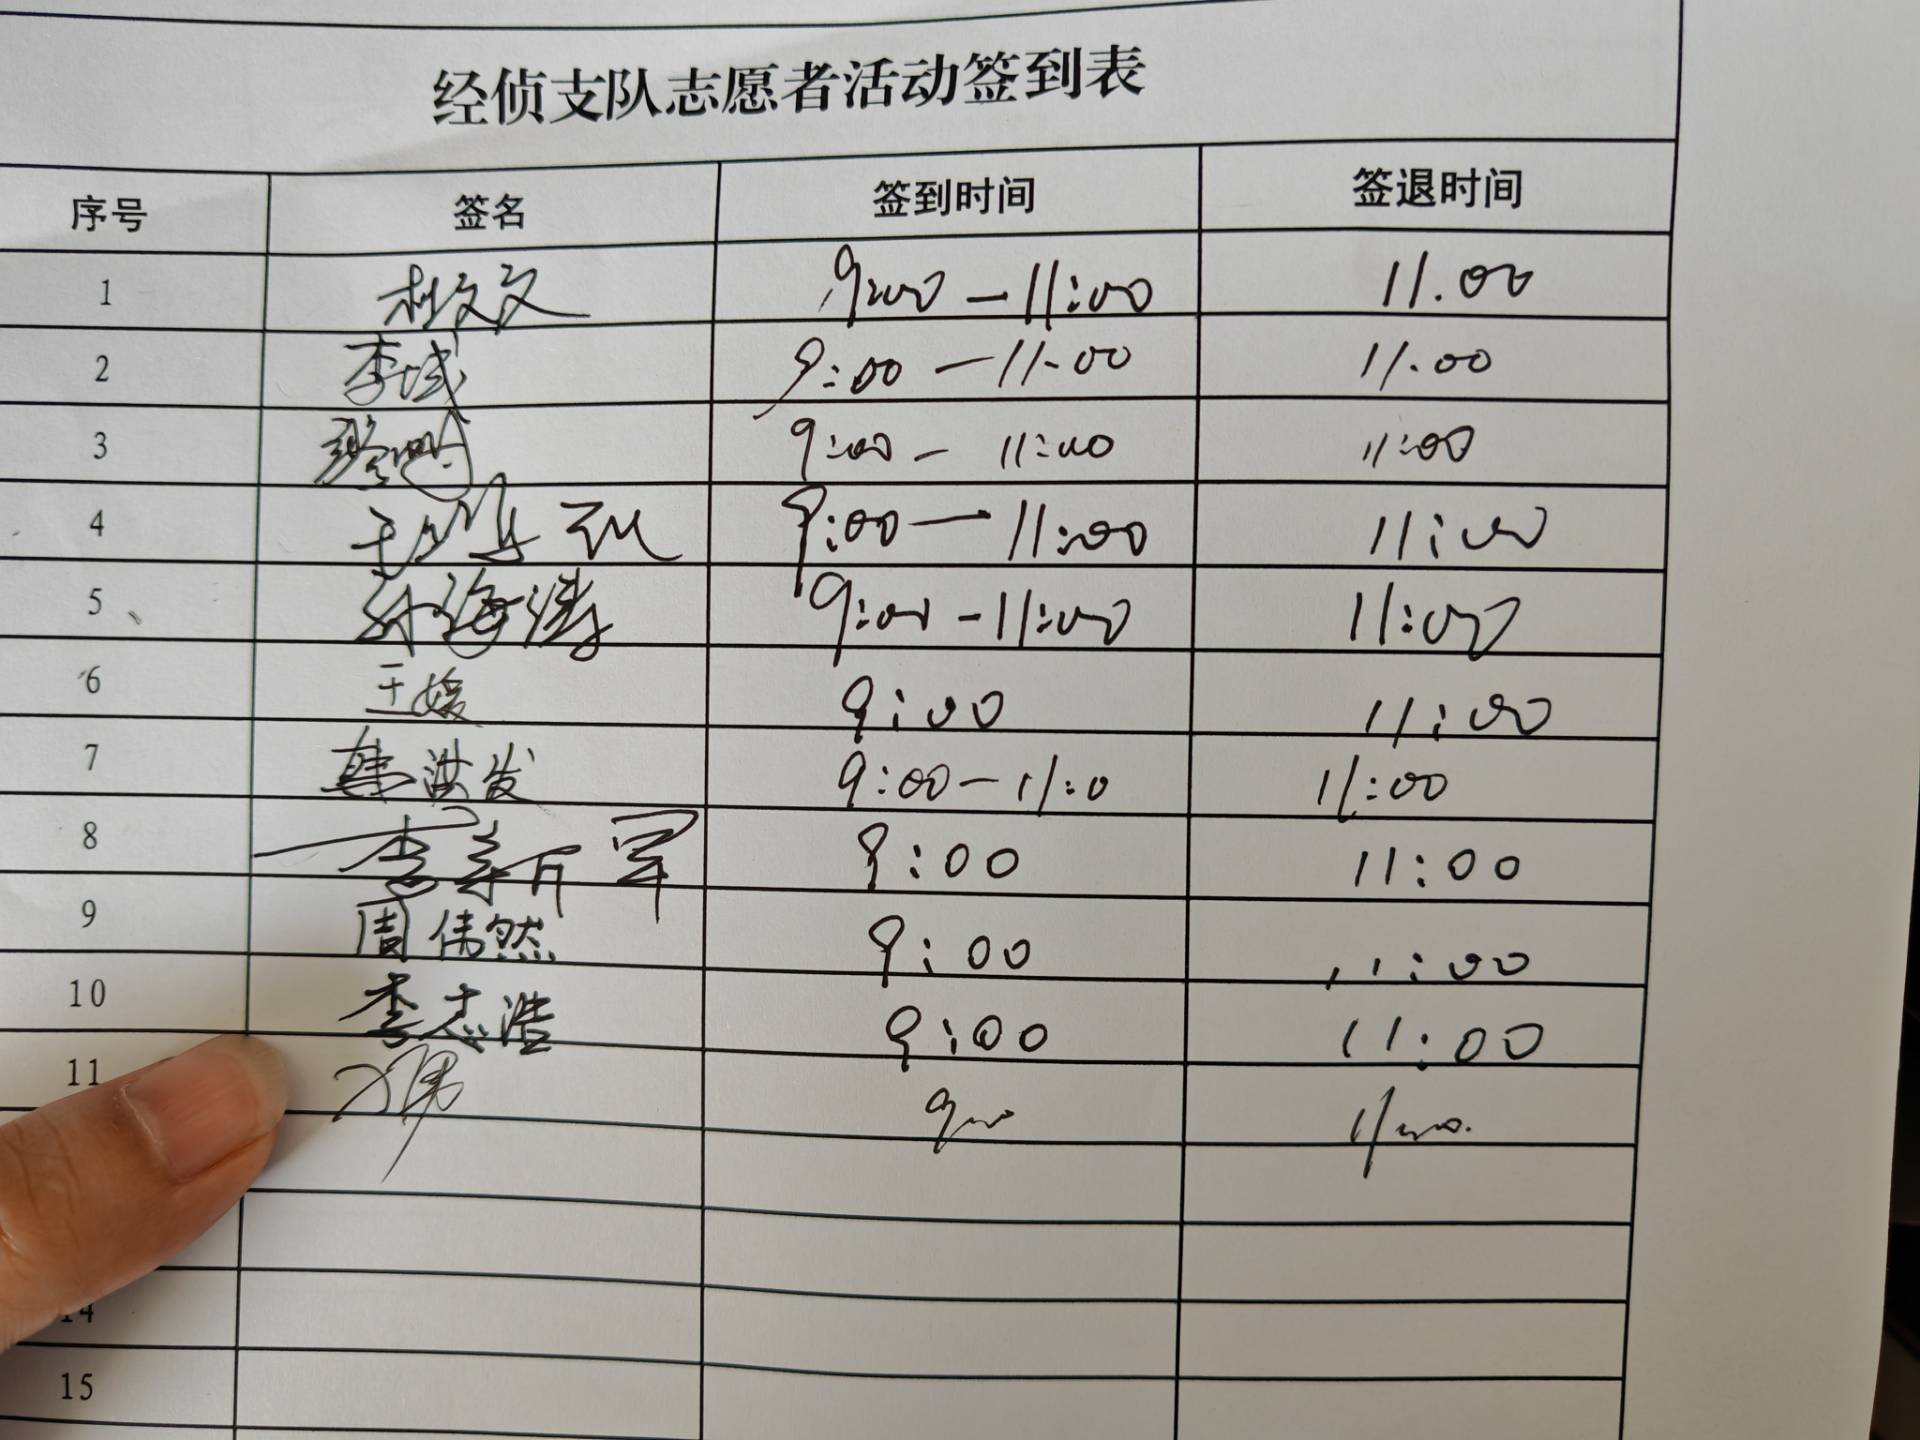 经侦支队志愿者活动签到表
序号 签名 签到时间 签退时间
1 杜文文 9:00-11:00 11.00
2 李斌 9:00-11.00 11.00
3 9:00-11:00 11:00
4 9:00-11:00 11:00
5 孙海涛 9:00-11:00 11:00
6 王媛 9:00 11:00
7 韩洪发 9:00-11:0 11:00
8 李军 9:00 11:00
9 周伟然 9:00 11:00
10 李志浩 9:00 11:00
11 9:00 11:00
14
15